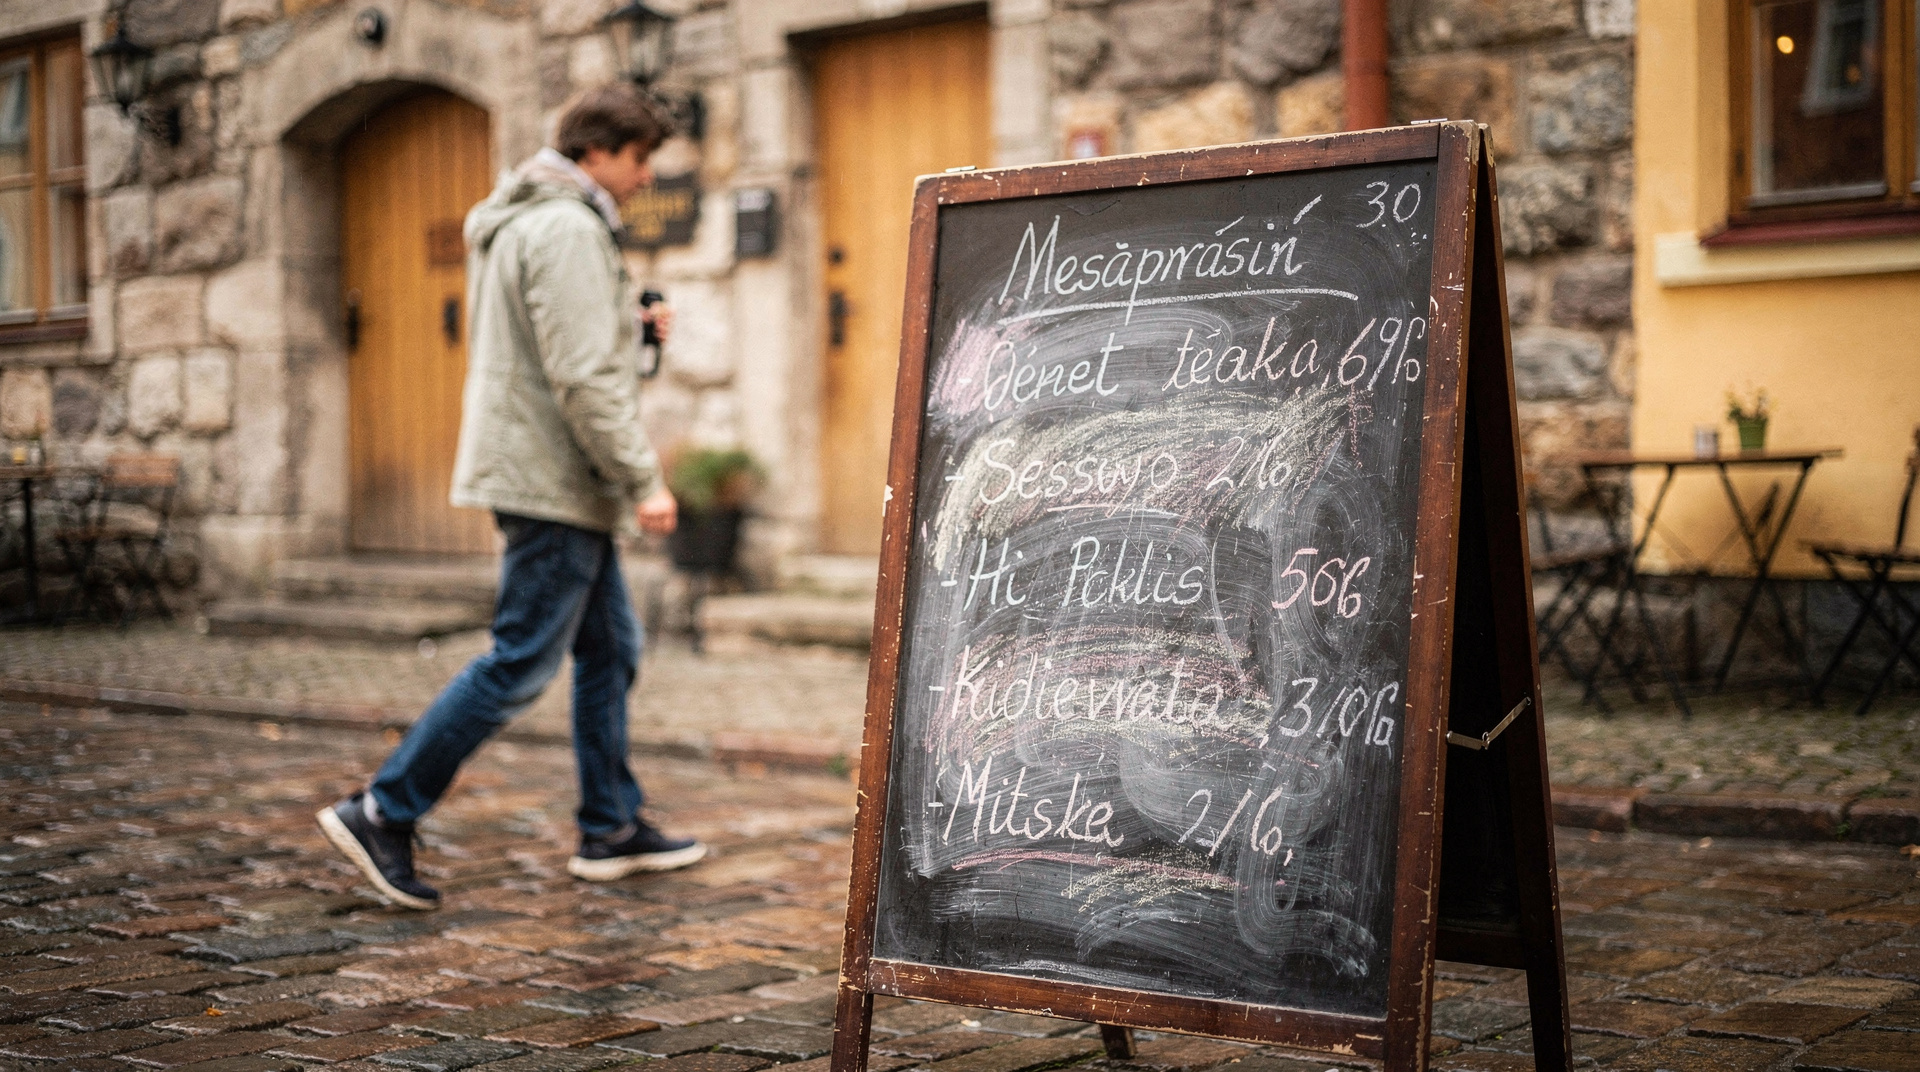 30
Mesăpırásiń
- Oénet téaka, 69%
- Sessuyo 2%,
- Hi Pcklis 506
- Kidiewata, 310%
- Mitske 2%,